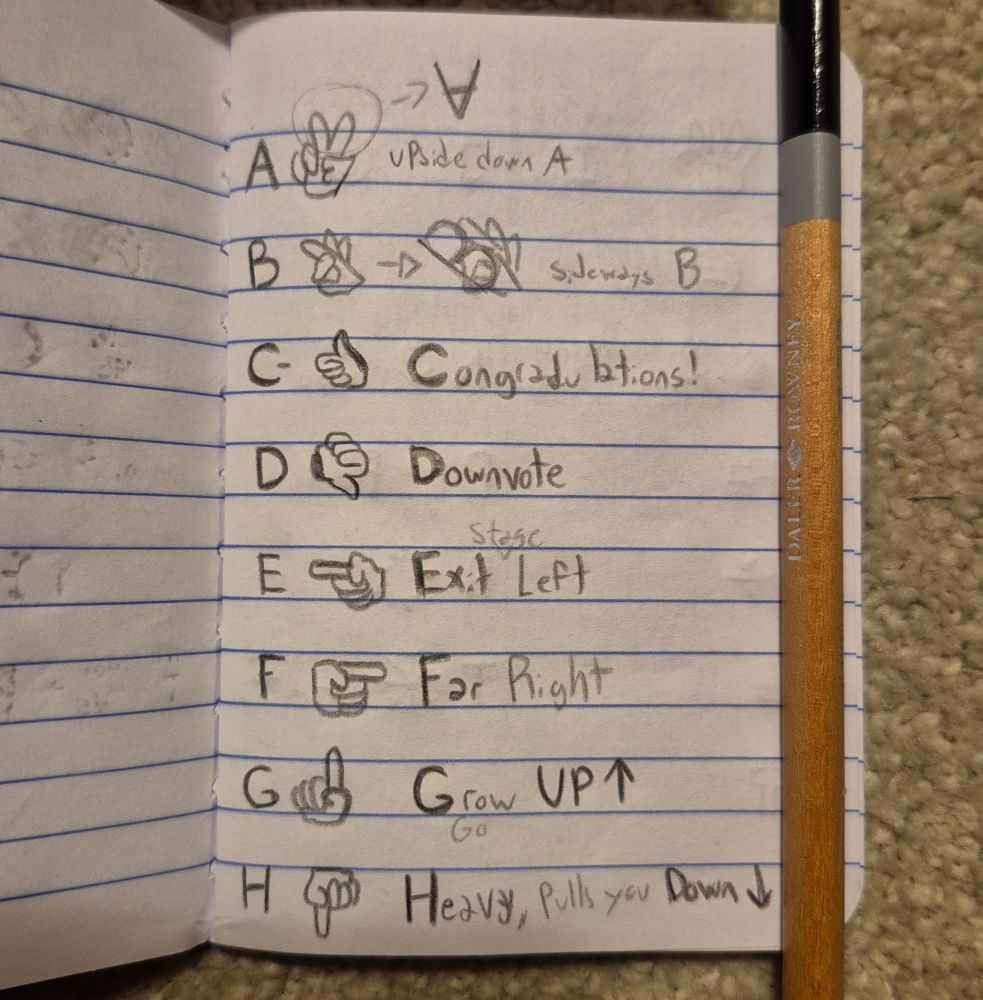 → ∀
A upside down A
B → sideways B
C- Congradulations!
D Downvote
Stage
E Exit Left
F Far Right
G Grow UP ↑
Go
H Heavy, pulls you Down ↓
DALER ROWNEY